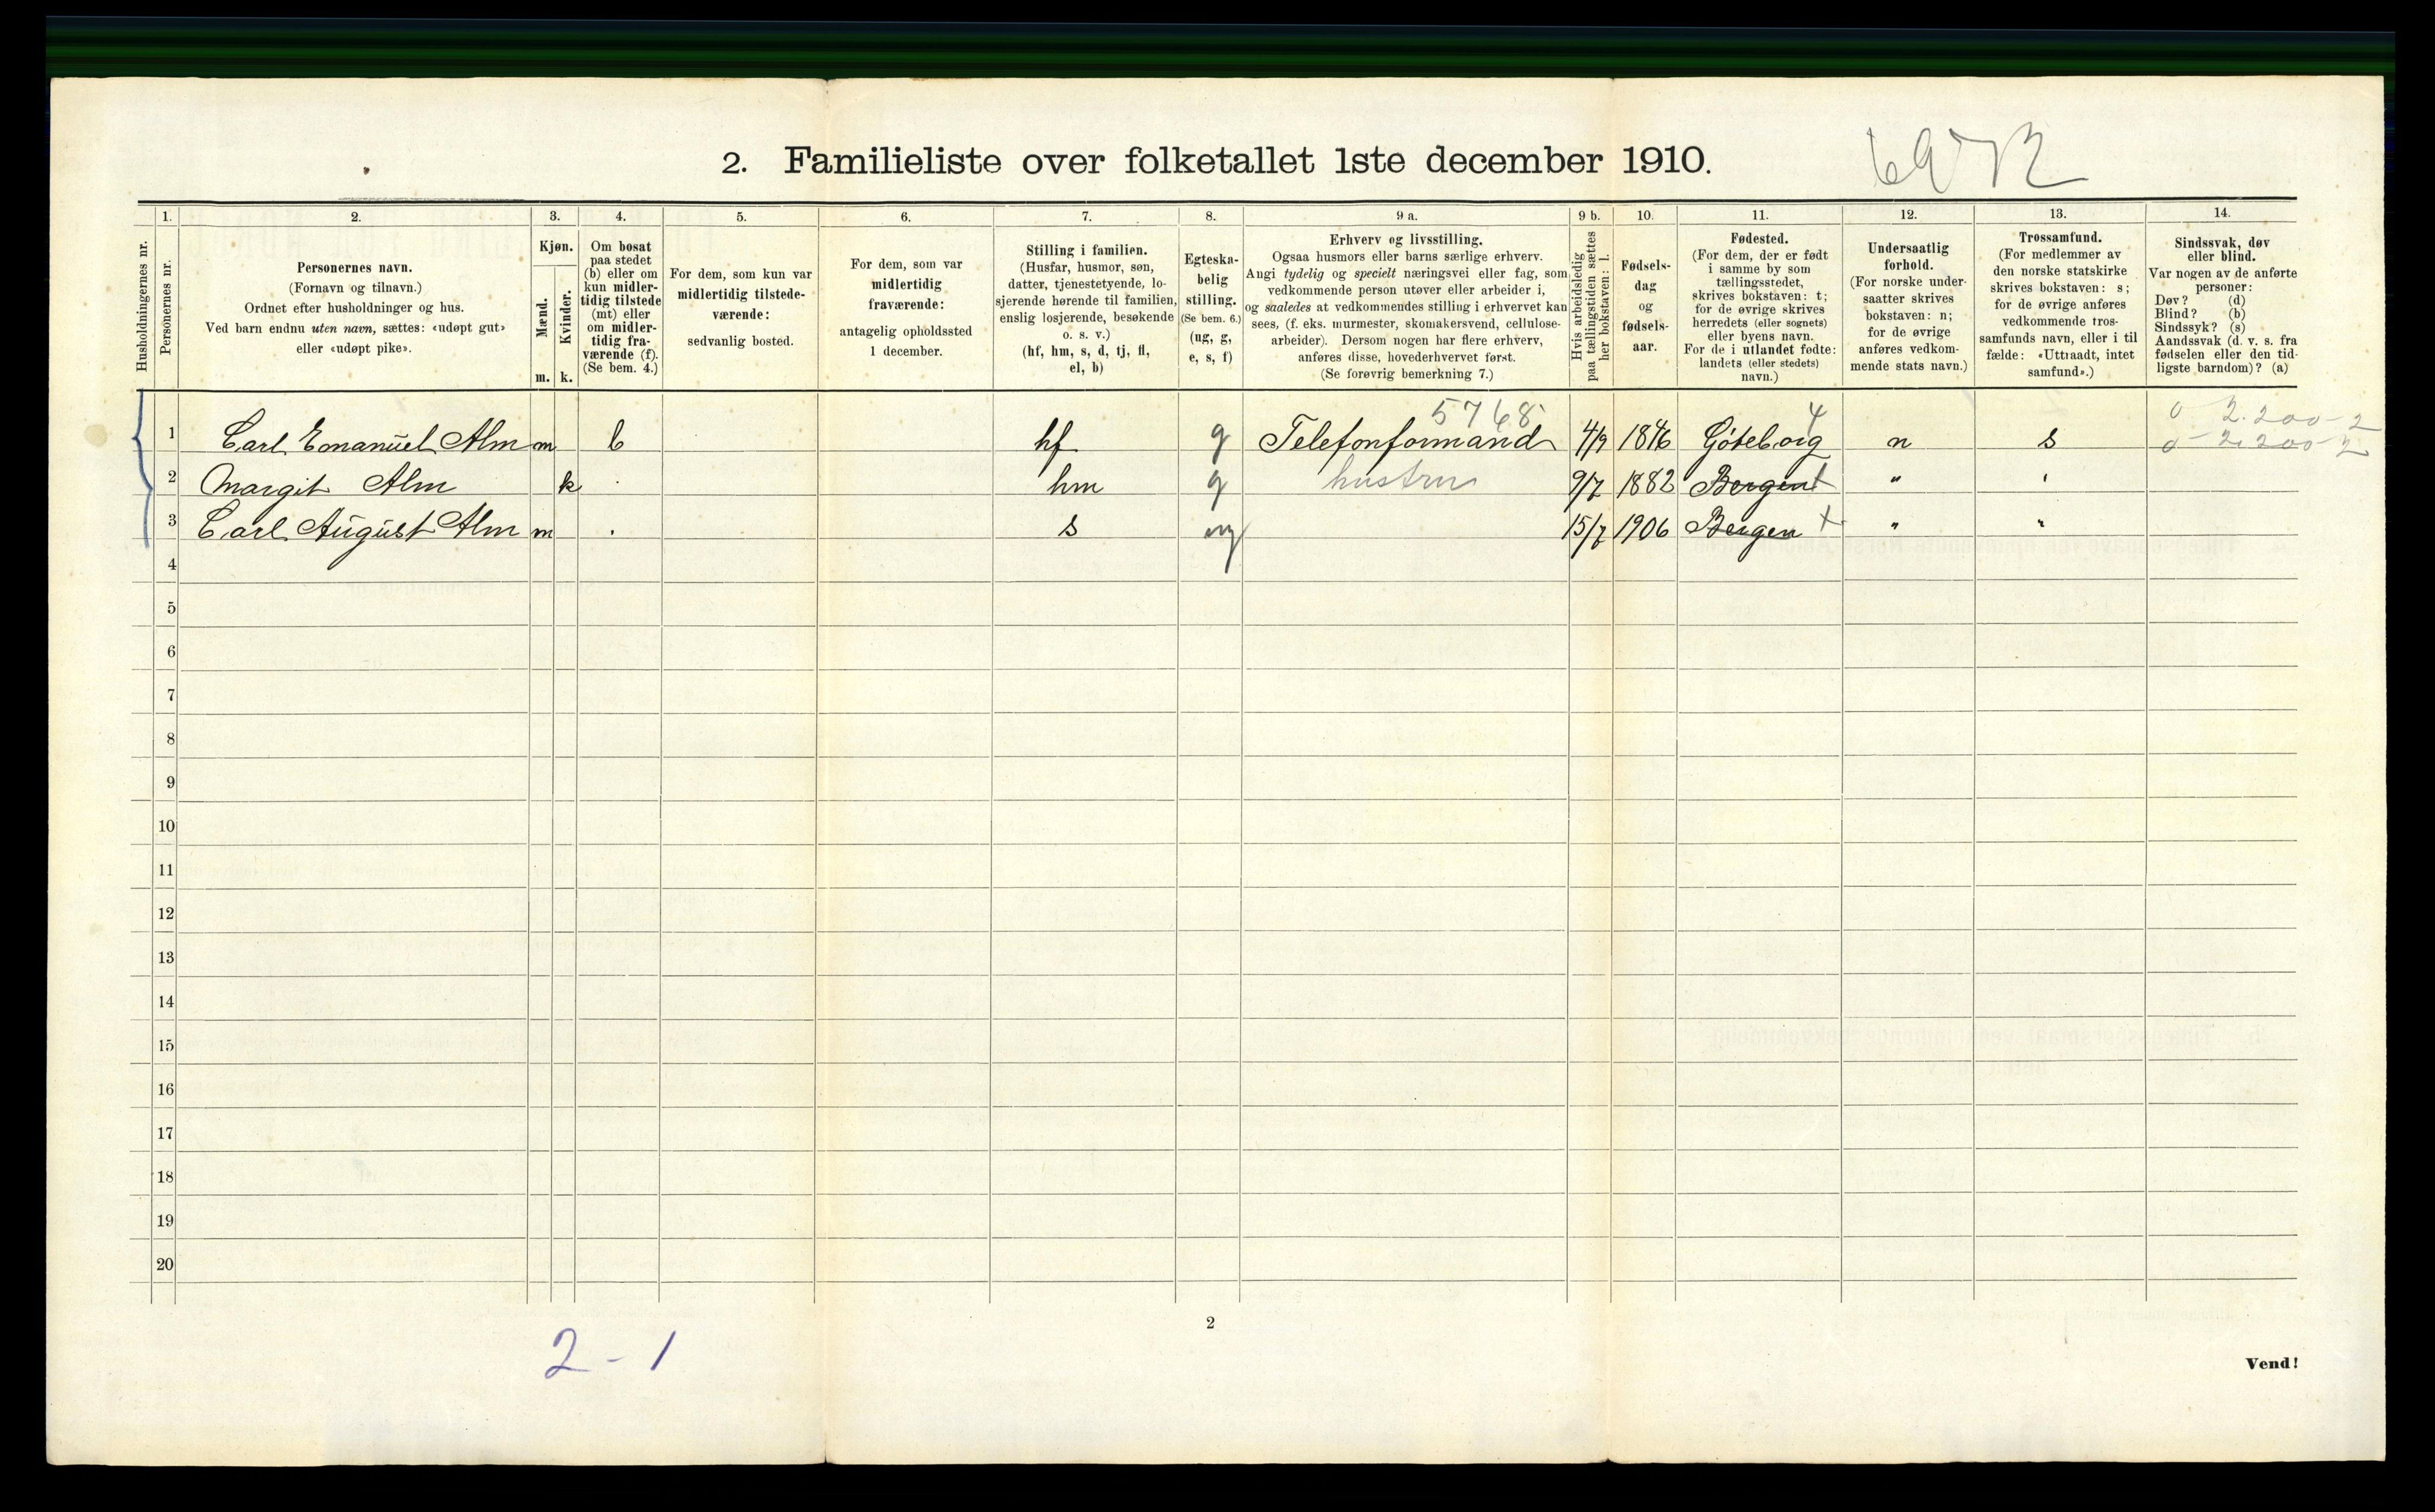 2. Familieliste over folketallet 1ste december 1910.
1. 2. 3. 4. 5. 6. 7. 8. 9 a. 9 b. 10. 11. 12. 13. 14.
Husholdningernes nr.
Personernes nr.
Personernes navn.
(Fornavn og tilnavn.)
Ordnet efter husholdninger og hus.
Ved barn endnu uten navn, sættes: «udøpt gut»
eller «udøpt pike».
Kjøn.
Mænd.
Kvinder.
m. k.
Om bosat
paa stedet
(b) eller om
kun midler-
tidig tilstede
(mt) eller
om midler-
tidig fra-
værende (f).
(Se bem. 4.)
For dem, som kun var
midlertidig tilstede-
værende:
sedvanlig bosted.
For dem, som var
midlertidig
fraværende:
antagelig opholdssted
1 december.
Stilling i familien.
(Husfar, husmor, søn,
datter, tjenestetyende, lo-
sjerende hørende til familien,
enslig losjerende, besøkende
o. s. v.)
(hf, hm, s, d, tj, fl,
el, b)
Egteska-
belig
stilling.
(Se bem. 6.)
(ug, g,
e, s, f)
Erhverv og livsstilling.
Ogsaa husmors eller barns særlige erhverv.
Angi tydelig og specielt næringsvei eller fag, som
vedkommende person utøver eller arbeider i,
og saaledes at vedkommendes stilling i erhvervet kan
sees, (f. eks. murmester, skomakersvend, cellulose-
arbeider). Dersom nogen har flere erhverv,
anføres disse, hovederhvervet først.
(Se forøvrig bemerkning 7.)
Hvis arbeidsledig
paa tællingstiden sættes
her bokstaven: l.
Fødsels-
dag
og
fødsels-
aar.
Fødested.
(For dem, der er født
i samme by som
tællingsstedet,
skrives bokstaven: t;
for de øvrige skrives
herredets (eller sognets)
eller byens navn.
For de i utlandet fødte:
landets (eller stedets)
navn.)
Undersaatlig
forhold.
(For norske under-
saatter skrives
bokstaven: n;
for de øvrige
anføres vedkom-
mende stats navn.)
Trossamfund.
(For medlemmer av
den norske statskirke
skrives bokstaven: s;
for de øvrige anføres
vedkommende tros-
samfunds navn, eller i til
fælde: «Uttraadt, intet
samfund».)
Sindssvak, døv
eller blind.
Var nogen av de anførte
personer:
Døv? (d)
Blind? (b)
Sindssyk? (s)
Aandssvak (d. v. s. fra
fødselen eller den tid-
ligste barndom)? (a)
5768 4 0 2.200-2
1 Carl Emanuel Alm m b hf g Telefonformand 4/9 1846 Göteborg n s 0 2.200-2
2 Margit Alm k hm g hustru 9/7 1882 Bergen t " '
3 Carl August Alm m . s ug 15/7 1906 Bergen t " "
4
5
6
7
8
9
10
11
12
13
14
15
16
17
18
19
20
2
2 - 1
Vend!